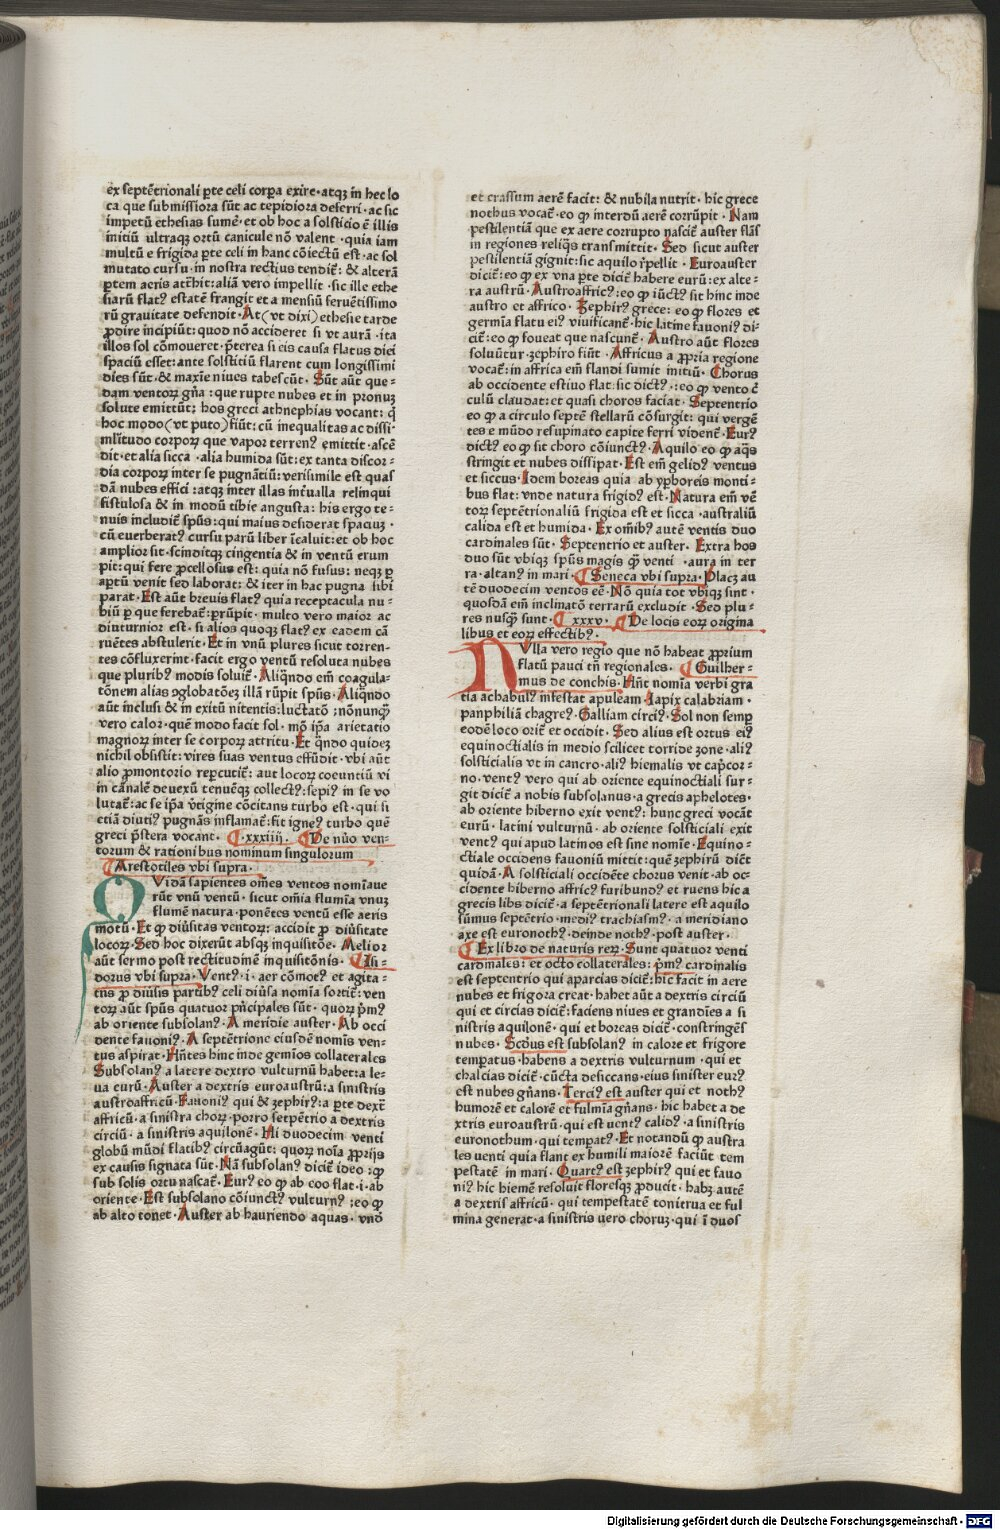 ex septētrionali ꝑte celi corpꝛa exire·atqꝫ in hec lo
ca que submissiora sūt ac tepidiora deferri·ac sic
impetū ethesias sume᷑·et ob hoc a solsticio ē illis
initiū ultraqꝫ ortū canicule nō valent·quia iam
multū e frigida ꝑte celi in hanc cōiectū est·ac sol
mutato cursu·in nostra rectius tendit᷑: & alterā
ꝑtem aeris attᷓhit:aliā vero impellit·sic ille ethe
siarū flatꝰ estatē frangit et a mensiū feruētissimo
rū grauitate defendit·At(vt dixi)ethesie tarde
ꝓdire incipiūt: quod nō accideret si vt aurā·ita
illos sol cōmoueret·p̄terea si eis causa flatus dici
spaciū esset:ante solstitiū flarent cum longissimi
dies sūt·& maxīe niues tabescūt·Sūt aūt que⸗
dam ventoꝝ gn̄a:que rupte nubes et in pronuꝫ
solute emittūt: hos greci athnephias vocant: q̄
hoc modo(vt puto)fiūt: cū inequalitas ac dissi⸗
mlitudo corpoꝝ que vapoꝛ terrenꝰ emittit·ascē
dit·et alia sicca·alia humida sūt: ex tanta discor⸗
dia corpoꝝ inter se pugnātiū:verisimile est quas
dā nubes effici:atqꝫ inter illas int̄ualla relinqui
fistulosa & in modū tibie angusta: his ergo te⸗
nuis includit᷑ spūs: qui maius desiderat spaciuꝫ·
cū euerberatꝰ cursu parū liber īcaluit: et ob hoc
amplior sit·scinditqꝫ cingentia & in ventū erum
pit: qui fere ꝓcellosus est: quia nō fusus: neqꝫ ꝑ
aꝑtū venit sed laborat: & iter in hac pugna sibi
parat·Est aūt breuis flatꝰ quia receptacula nu⸗
biū ꝑ que ferebat᷑:prūpit·multo vero maior ac
diuturnior est·si alios quoqꝫ flatꝰ ex eadem cā
ruētes abstulerit·Et in vnū plures sicut torren⸗
tes cōfluxerint·facit ergo ventū resoluta nubes
que pluribꝰ modis soluit᷑·Aliqn̄do em̄ coagula⸗
tōnem alias ꝯglobatōeꝫ illā rūpit spūs·Aliqn̄do
aūt inclusi & in exitū nitentis: luctatō:nōnunqꝫ
vero calor·quē modo facit sol·mō ip̄a arietatio
magnoꝝ inter se corpoꝝ attritu·Et qn̄do quideꝫ
nichil obsistit: vires suas ventus effūdit·vbi aūt
alio ꝓmontorio reꝑcutit᷑: aut locoꝝ coeuntiū vi
in canalē deuexū tenuēqꝫ collectꝰ:sepiꝰ in se vo
lutat᷑:ac se ip̄a v̄tigine cōcitans turbo est·qui si
etiā diutiꝰ pugnās inflamat᷑:fit igneꝰ turbo quē
greci p̄stera vocant. ·xxxiiij. De nūo ven⸗
torum & rationibus nominum singulorum
Arestotiles vbi supra·
QVidā sapientes om̄es ventos nomīaue
rūt vnū ventū·sicut om̄ia flumīa vnuꝫ
flumē natura·ponētes ventū esse aeris
motū·Et ꝙ diūsitas ventoꝝ: accidit ꝓ diūsitate
locoꝝ·Sed hoc dixerūt absqꝫ inquisitōe·Melior
aūt sermo post rectitudinē inquisitōnis· Isi⸗
dorus vbi supra·Ventꝰ·i·aer cōmotꝰ et agita⸗
tꝰ ꝓ diūsis partibꝰ celi diūsa nomīa sortit᷑:ven
toꝝ aūt spūs quatuor pn̄cipales sūt·quoꝝ p̄mꝰ
ab oriente subsolanꝰ·A meridie auster·Ab occi
dente fauoniꝰ·A septētrione eiusdē nomīs ven⸗
tus aspirat·Hn̄tes hinc inde gemīos collaterales
Subsolanꝰ a latere dextro vulturnū habet:a le⸗
ua eurū·Auster a dextris euroaustrū:a sinistris
austroaffricū·Fauoniꝰ qui & zephirꝰ:a ꝑte dext᷑
affricū·a sinistra choꝝ·porro setpētrio a dextris
circiū·a sinistris aquilonē·Hi duodecim venti
globū mūdi flatibꝰ circūagūt: quoꝝ noīa ꝓprijs
ex causis signata sūt·Nā subsolanꝰ dicit᷑ ideo:ꝙ
sub solis ortu nascat᷑·Eurꝰ eo ꝙ ab coo flat·i·ab
oriente·Est subsolano cōiunctꝰ vulturnꝰ:eo ꝙ
ab alto tonet·Auster ab hauriendo aquas·vnd̄
et crassum aerē facit: & nubila nutrit·hic grece
nothus vocat᷑·eo ꝙ interdū aerē corrūpit·Nam
pestilentiā que ex aere corrupto nascit᷑ auster flās
in regiones reliqꝰs transmittit·Sed sicut auster
pestilentiā gignit:sic aquilo r̄pellit·Euroauster
dicit᷑:eo ꝙ ex vna ꝑte dicit᷑ habere eurū:ex alte⸗
ra austrū·Austroaffricꝰ:eo ꝙ iūctꝰ sit hinc inde
austro et affrico·Zephirꝰ grece: eo ꝙ flores et
germīa flatu eiꝰ viuificant᷑·hic latine fauoniꝰ di⸗
cit᷑:eo ꝙ foueat que nascunt᷑·Austro aūt flores
soluūtur·zephiro fiūt·Affricus a ꝓpria regione
vocat᷑:in affrica em̄ flandi sumit initiū·Chorus
ab occidente estiuo flat:sic dictꝰ·:eo ꝙ vento c̄
culū claudat:et quasi choros faciat·Septentrio
eo ꝙ a circulo septē stellarū cōsurgit: qui vergē⸗
tes e mūdo resupinato capite ferri vident᷑·Eurꝰ
dictꝰ eo ꝙ sit choro cōiunctꝰ·Aquilo eo ꝙ aq̄s
stringit et nubes dissipat·Est em̄ gelidꝰ ventus
et siccus·Idem boreas quia ab yꝑboreis monti⸗
bus flat:vnde natura frigidꝰ est·Natura em̄ vē
toꝝ septētrionaliū frigida est et sicca·australiū
calida est et humida·Ex om̄ibꝰ autē ventis duo
cardinales sūt·Septentrio et auster·Extra hos
duo sūt vbiqꝫ spūs magis qꝫ venti·aura in ter
ra·altanꝰ in mari· Seneca vbi supra·Placꝫ au
tē duodecim ventos eē·Nō quia tot vbiqꝫ sint·
quosdā em̄ inclinatō terrarū excludit·Sed plu⸗
res nusqꝫ sunt· xxxv· De locis eoꝝ origina
libus et eoꝝ effectibꝰ·
NVlla vero regio que nō habeat ꝓprium
flatū pauci tn̄ regionales· Guilher⸗
mus de conchis·Hn̄t nomīa verbi gra
tia achabulꝰ infestat apuleam·Iapix calabriam·
panphiliā chagreꝰ·Galliam circiꝰ·Sol non semꝑ
eodē loco orit᷑ et occidit·Sed alius est ortus eiꝰ
equinoctialis in medio scilicet torride zone·aliꝰ
solsticialis vt in cancro·aliꝰ hiemalis vt cap̄icor⸗
no·ventꝰ vero qui ab oriente equinoctiali sur⸗
git dicit᷑ a nobis subsolanus·a grecis aphelotes·
ab oriente hiberno exit ventꝰ:hunc greci vocāt
eurū·latini vulturnū·ab oriente solsticiali exit
ventꝰ qui apud latinos est sine nomīe·Equino⸗
ctiale occidens fauoniū mittit:quē zephirū dicūt
quidā·A solsticiali occidēte chorus venit·ab oc⸗
cidente hiberno affricꝰ furibundꝰ et ruens hic a
grecis libs dicit᷑·a septētrionali latere est aquilo
sūmus septētrio·mediꝰ trachiasmꝰ·a meridiano
axe est euronothꝰ·deinde nothꝰ·post auster·
Ex libro de naturis reꝝ·Sunt quatuor venti
cardinales: et octo collaterales: p̄mꝰ cardinalis
est septentrio qui aparcias dicit᷑:hic facit in aere
nubes et frigora creat·habet aūt a dextris circiū
qui et circias dicit᷑:faciens niues et grandīes a si
nistris aquilonē·qui et boreas dicit᷑·constringēs
nubes·Scd̄us est subsolanꝰ in calore et frigore
temꝑatus·habens a dextris vulturnum·qui et
chalcias dicit᷑·cūcta desiccans·eius sinister eurꝰ
est nubes gn̄ans·Terciꝰ est auster qui et nothꝰ
humorē et calorē et fulmīa gn̄ans·hic habet a de
xtris euroaustrū·qui est uentꝰ calidꝰ·a sinistris
euronothum·qui tempat᷑·Et notandū ꝙ austra
les venti quia flant ex humili maiorē faciūt tem
pestatē in mari·Quartꝰ est zephirꝰ qui et fauo
niꝰ hic hiemē resoluit floresqꝫ ꝓducit·habꝫ autē
a dextris affricū·qui tempestatē tonitrua et ful
mina generat·a sinistris uero choruꝫ·qui ī duos
Digitalisierung gefördert durch die Deutsche Forschungsgemeinschaft - DFG